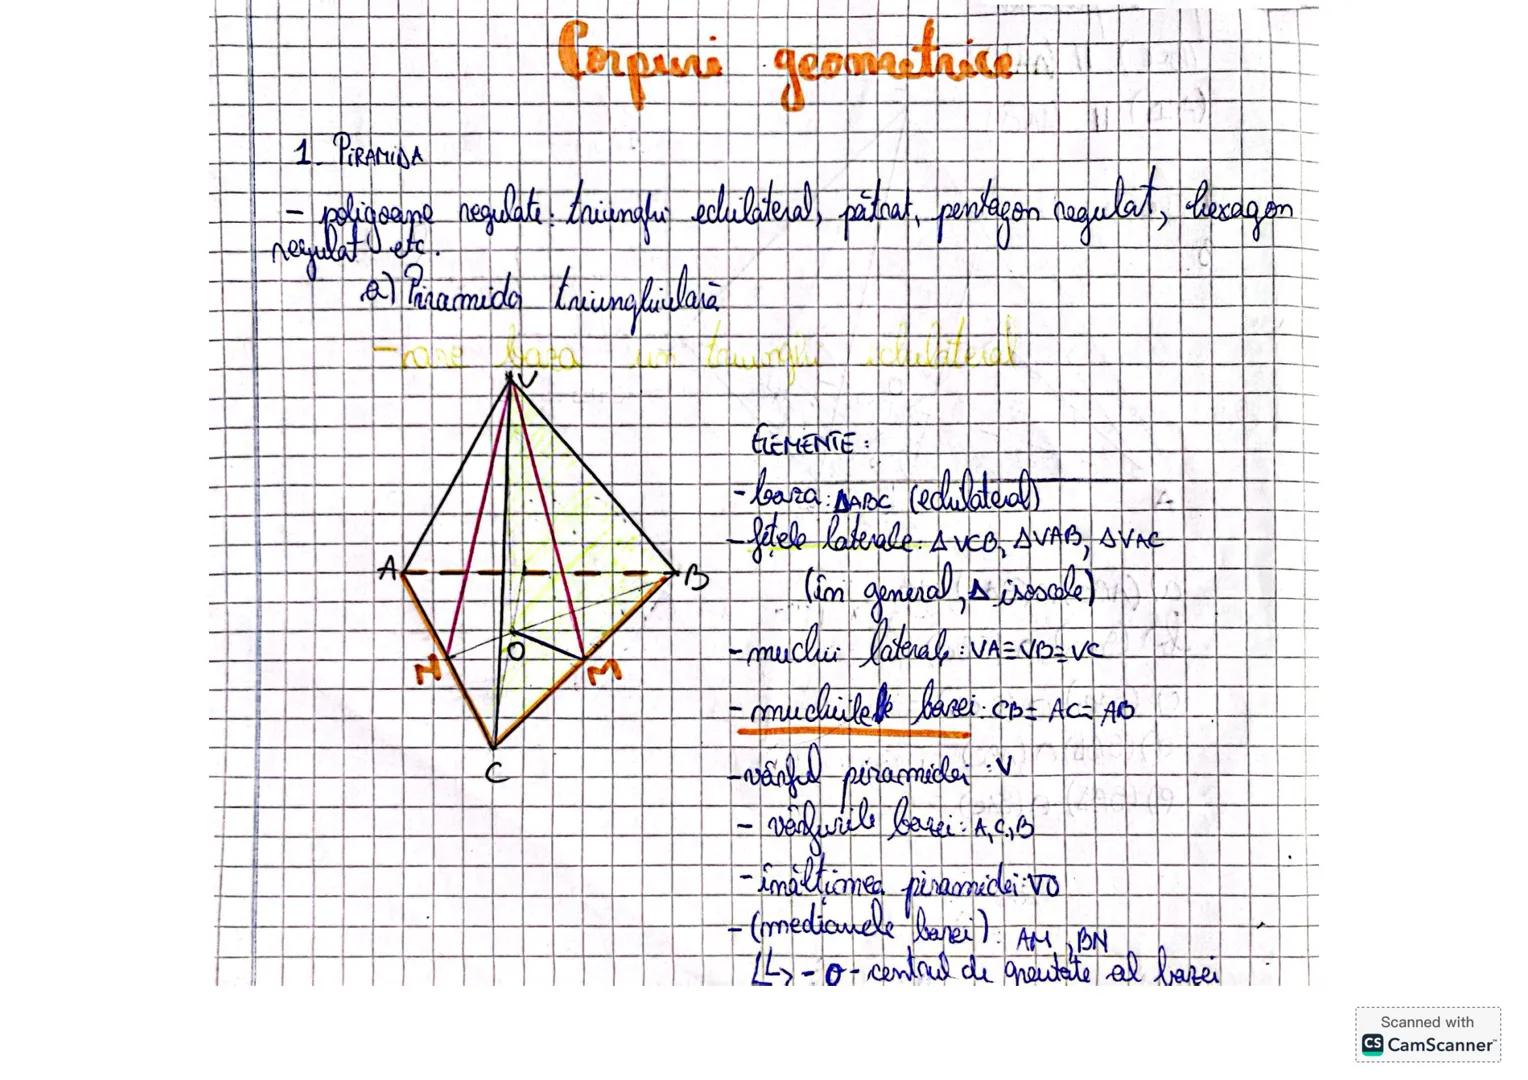 Corpuri geometrice
1. PIRAMIDA
- poligoane regulate: triunghi echilateral, pătrat, pentagon regulat, hexagon
regulat etc.
a) Piramida triunghiulară
- are baza un triunghi echilateral
V
A
B
O
N
M
C
ELEMENTE:
- baza: ΔABC (echilateral)
- fețele laterale: ΔVCB, ΔVAB, ΔVAC
(în general, Δ isoscele)
- muchii laterale: VA≡VB≡VC
- muchiile bazei: CB= AC= AB
- vârful piramidei: V
- vârfurile bazei: A, C, B
- înălțimea piramidei: VO
- (medianele bazei): AM, BN
↳ - O - centrul de greutate al bazei
Scanned with
CS CamScanner